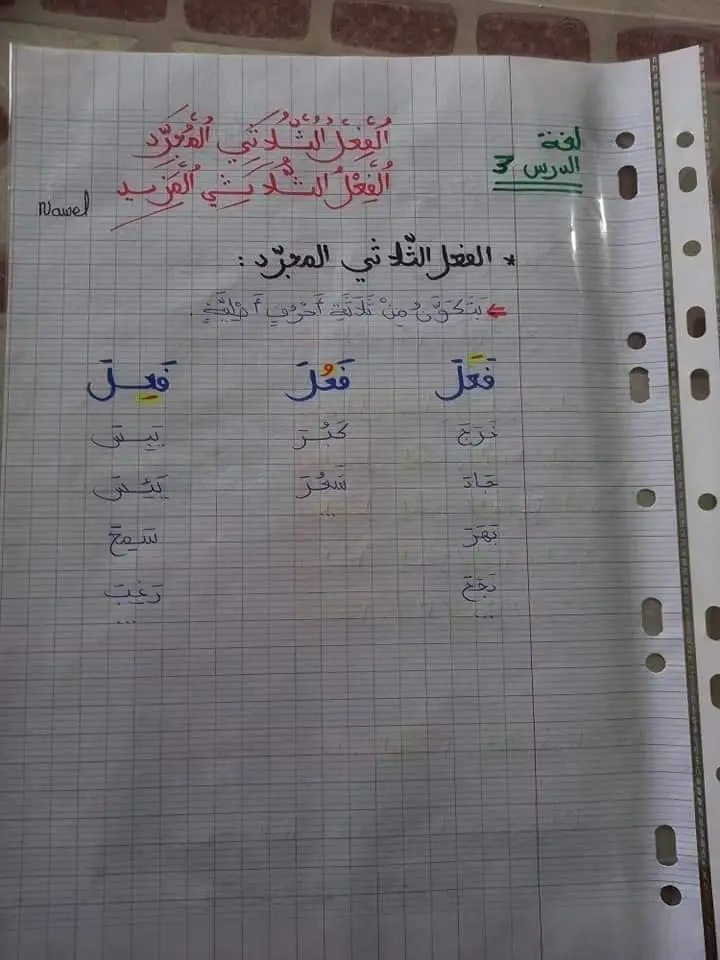 لغة
الدرس 3
الْفِعْلُ الثُّلَاثِي الْمُجَرَّد
الْفِعْلُ الثُّلَاثِي الْمَزِيد
Nawel
* الفعل الثّلاثي المجرّد :
يَتَكَوَّنُ مِنْ ثَلَاثَةِ أَحْرُفٍ أَصْلِيَّةٍ.
فَعَلَ فَعُلَ فَعِلَ
خَرَجَ كَبُرَ يَبِسَ
جَادَ شَعُرَ يَئِسَ
بَهَرَ سَمِعَ
رَغِبَ